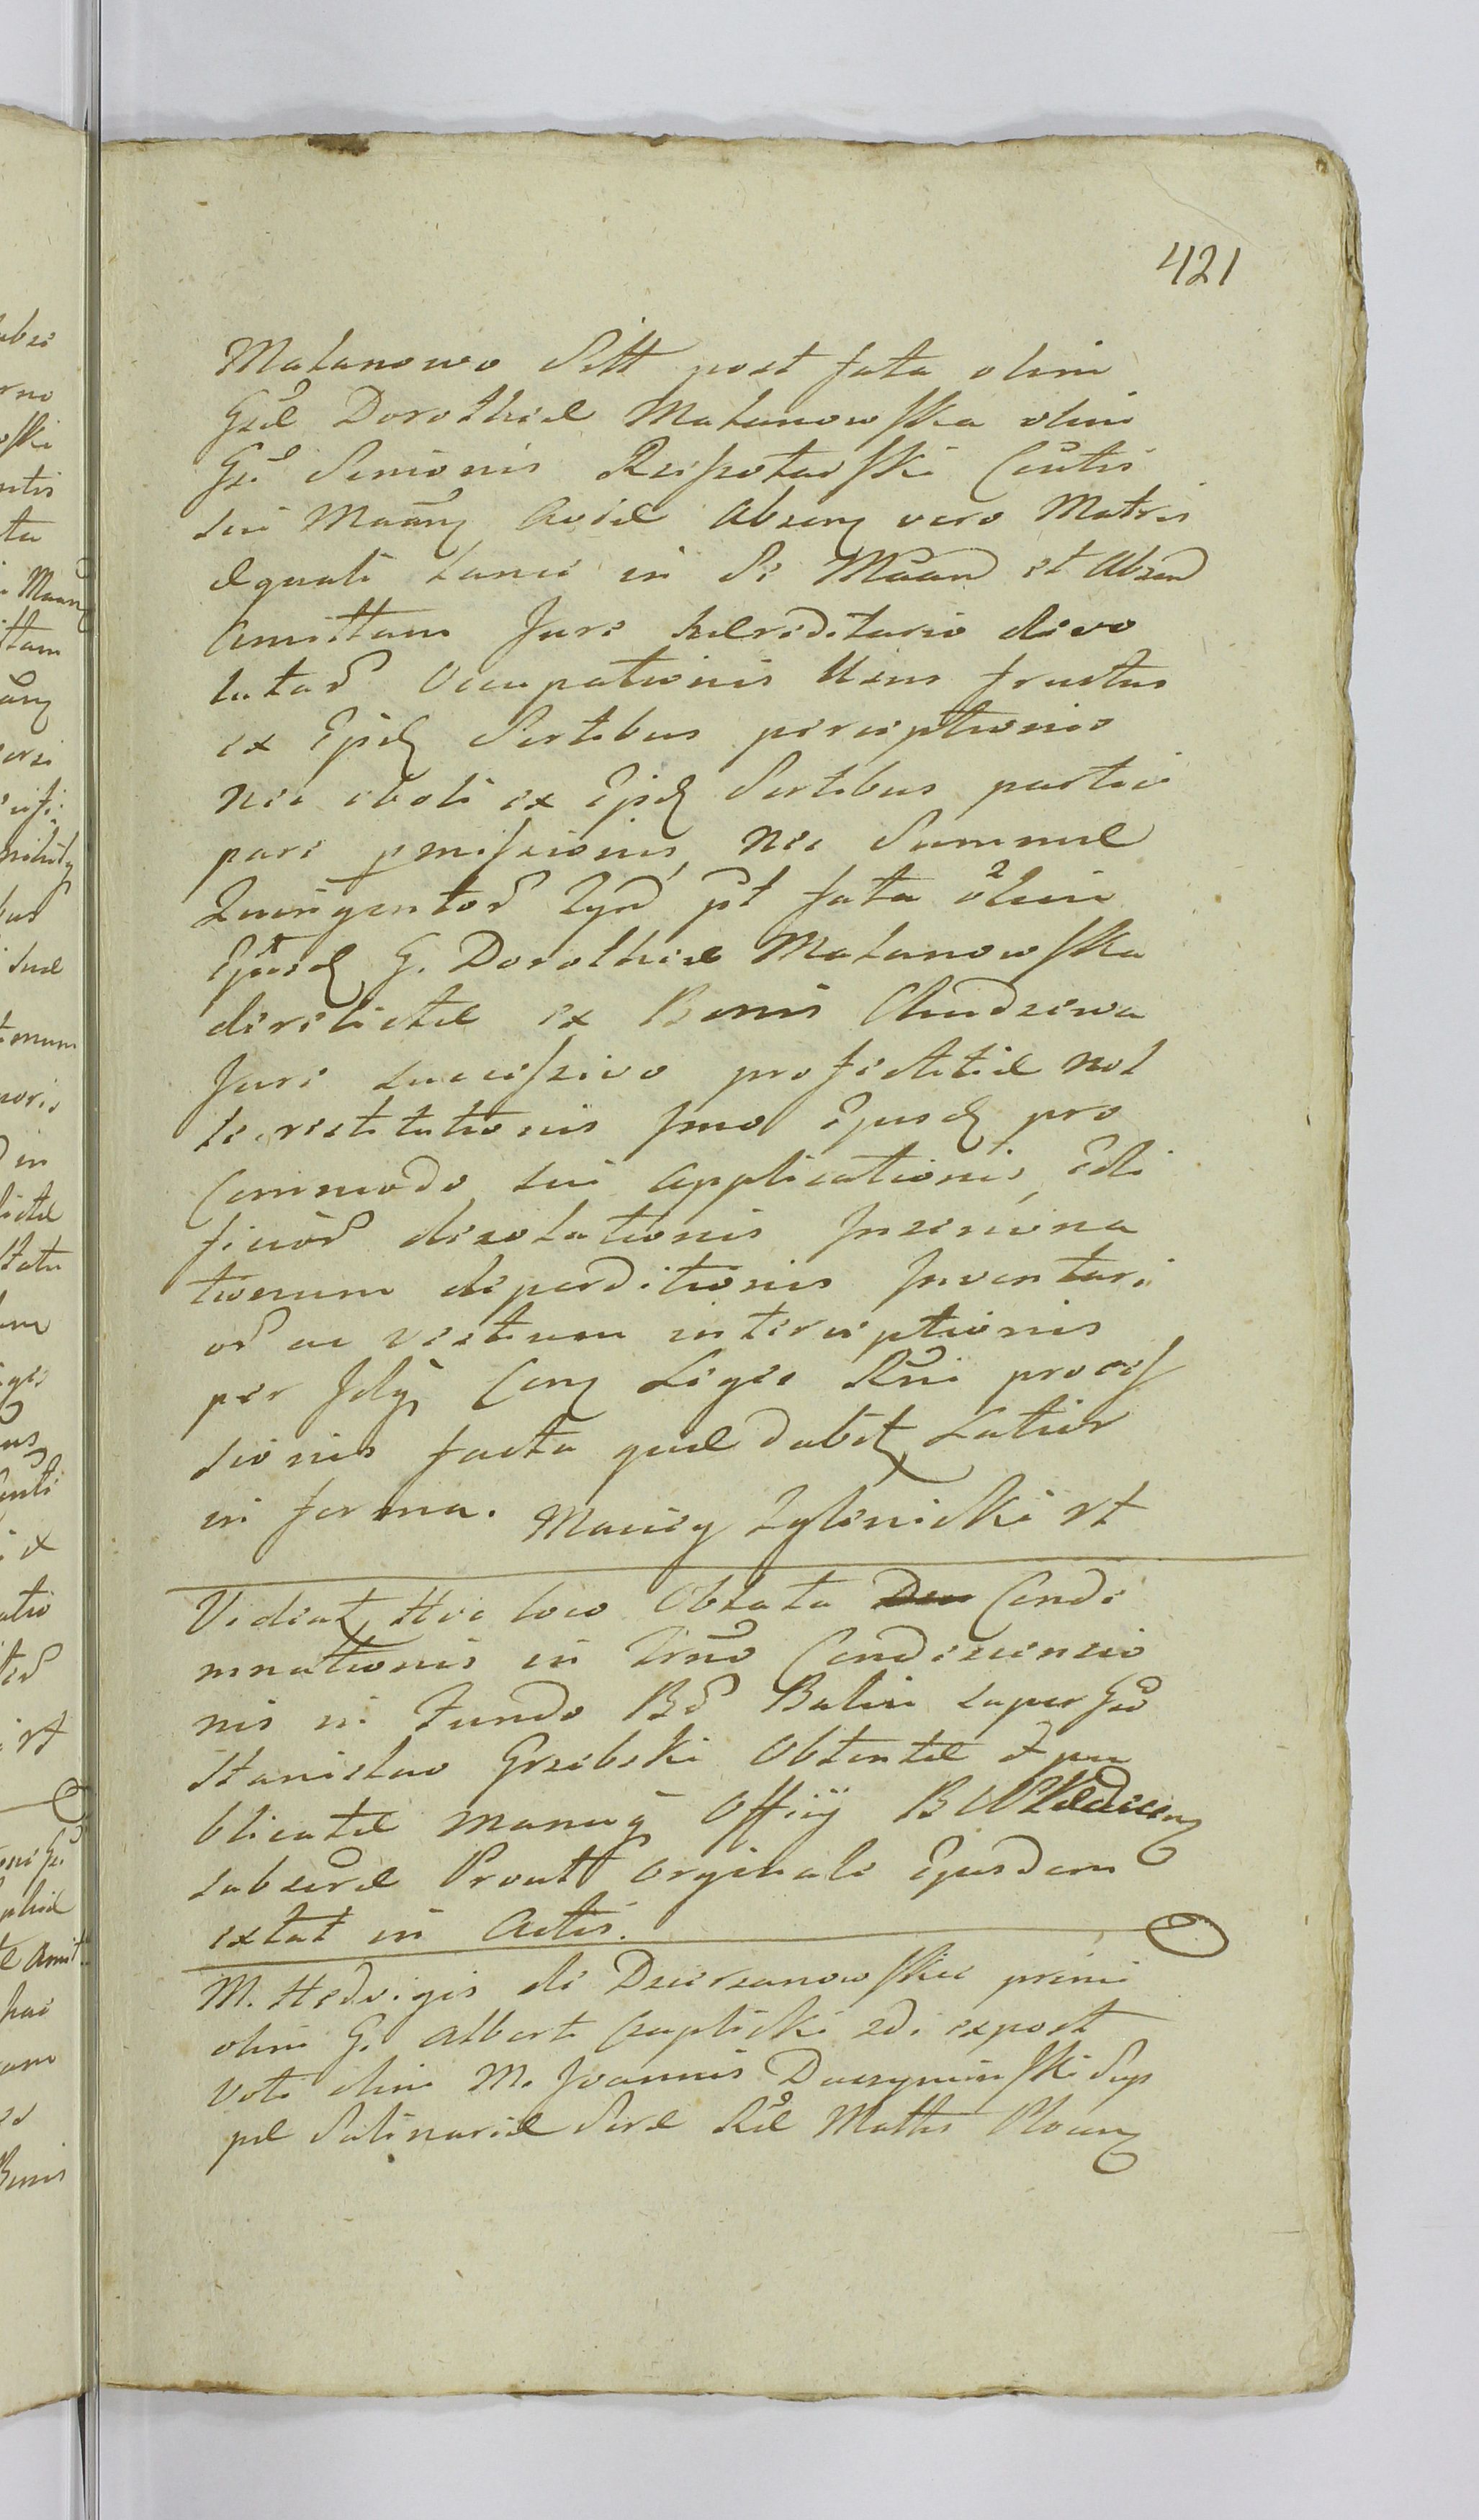 421
Malanowo Sitt post fata olim
Gsæ Dorotheæ Malanowska olim
Gsi Simonis Rzeszotarski Cōutis
sui Maāng Aviæ Absenq vero Matris
æquali Lance in Se Maand et Absend
Amittam Jure hæreditario devo
lutar Occupationis Usus fructus
ex Ijsdq Sortibus perceptionis
nec oboli ex Ijsdq Sortibus partici
pari pmissionis, nec Summæ
Quingentor Tynf pt fata olim
Ejusdq G. Dorotheæ Malanowska
derelictæ ex Bonis Chudzewa
Jure successivo profictitiæ nol
le restitutionis Imo Ejusdq pro
Commodo sui applicationis, Ædi
ficiōr desolationis Insemina
tionum deperditionis Inventari
or ac vestium interceptionis
per Idq, Conq Leges Rni proces
sionis facta quæ dabit, Latior
in forma. Maciey Zglenicki rt
Videat, Hoc loco Oblata Condi
mnationis in Trno Condescensio
nis in Fundo Br Balice super Gso
Stanislao Grzebski Obtentæ et pu
blicatæ manuq Offiij B
subscræ Prout Orginale Ejusdem
extat in Actis.
M. Hedvigis de Dzierzanowskie primi
olim G. Alberti Czaplicki 2di expost
voti olim M. Joannis Duczyminski Sup
pæ Salinariæ Seræ Ræ Mattis Plocenq